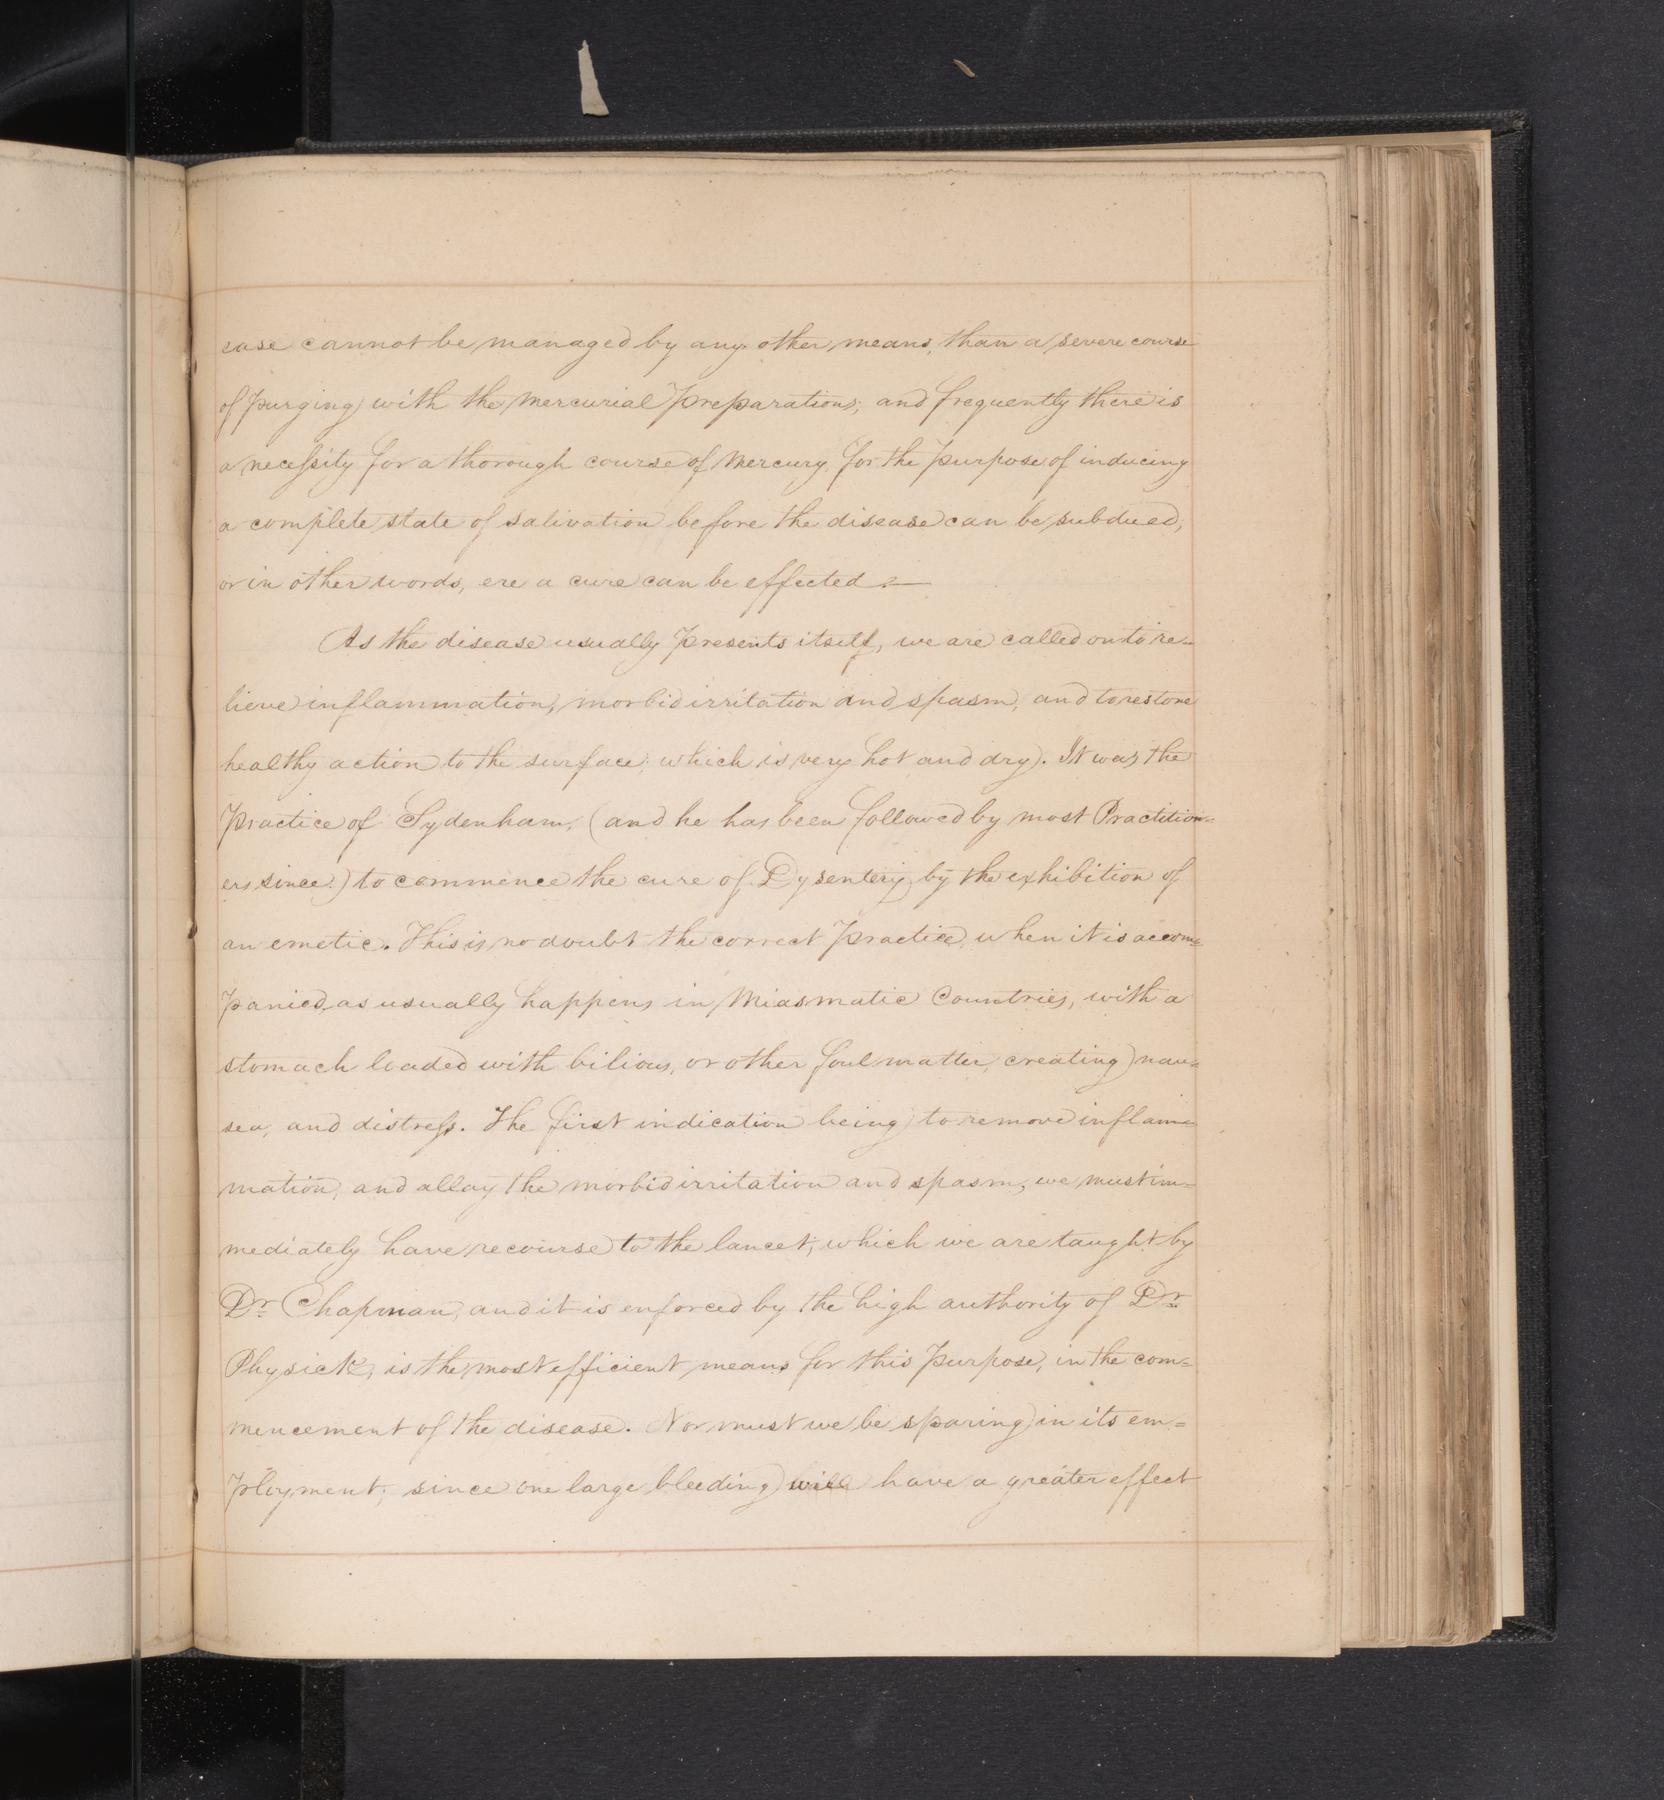 ease cannot be managed by any other means, than a severe course
of purging with the Mercurial preparations; and frequently there is
a necessity for a thorough course of Mercury for the purpose of inducing
a complete state of salivation before the disease can be subdued,
or in other words, ere a cure can be effected.—
As the disease usually presents itself, we are called on to re-
lieve inflammation, morbid irritation and spasm, and to restore
healthy action to the surface; which is very hot and dry. It was the
practice of Sydenham, (and he has been followed by most Practition-
ers since.) to commence the cure of Dysentery by the exhibition of
an emetic. This is no doubt the correct practice, when it is accom=
panied, as usually happens in Miasmatic Countries, with a
stomach loaded with bilious, or other foul matter, creating nau=
sea, and distress. The first indication being to remove inflam=
mation, and allay the morbid irritation and spasm, we must im=
mediately have recourse to the lancet, which we are taught by
Dr. Chapman, and it is enforced by the high authority of Dr.
Physick, is the most efficient means for this purpose, in the com=
mencement of the disease. Nor must we be sparing in its em=
ployment; since one large bleeding will have a greater effect